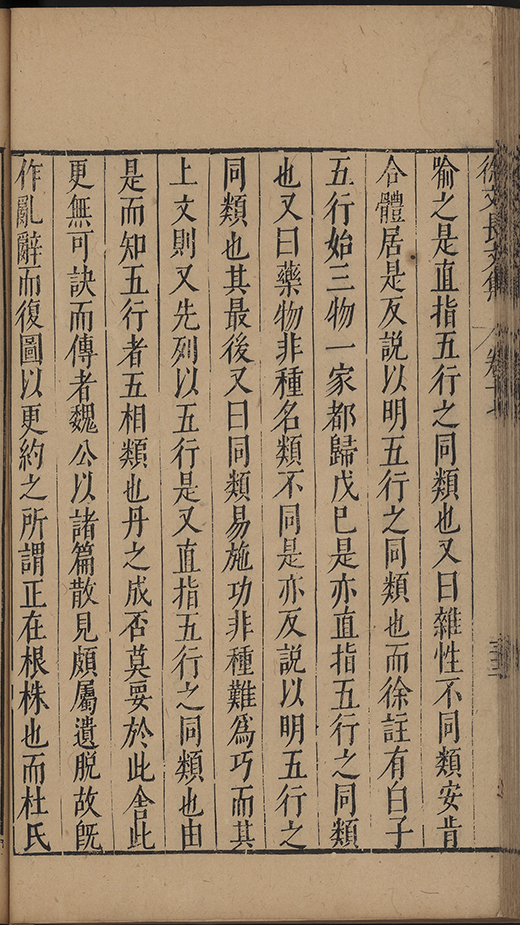 徐文長文集 卷十七
喻之是直指五行之同類也又曰雜性不同類安肯
合體居是反說以明五行之同類也而徐註有白子
五行始三物一家都歸戊巳是亦直指五行之同類
也又曰藥物非種名類不同是亦反說以明五行之
同類也其最後又曰同類易施功非種難爲巧而其
上文則又先列以五行是又直指五行之同類也由
是而知五行者五相類也丹之成否莫妥於此舎此
更無可訣而傳者魏公以諸篇散見頗屬遺脫故旣
作亂辭而復圖以更約之所謂正在根株也而杜氏